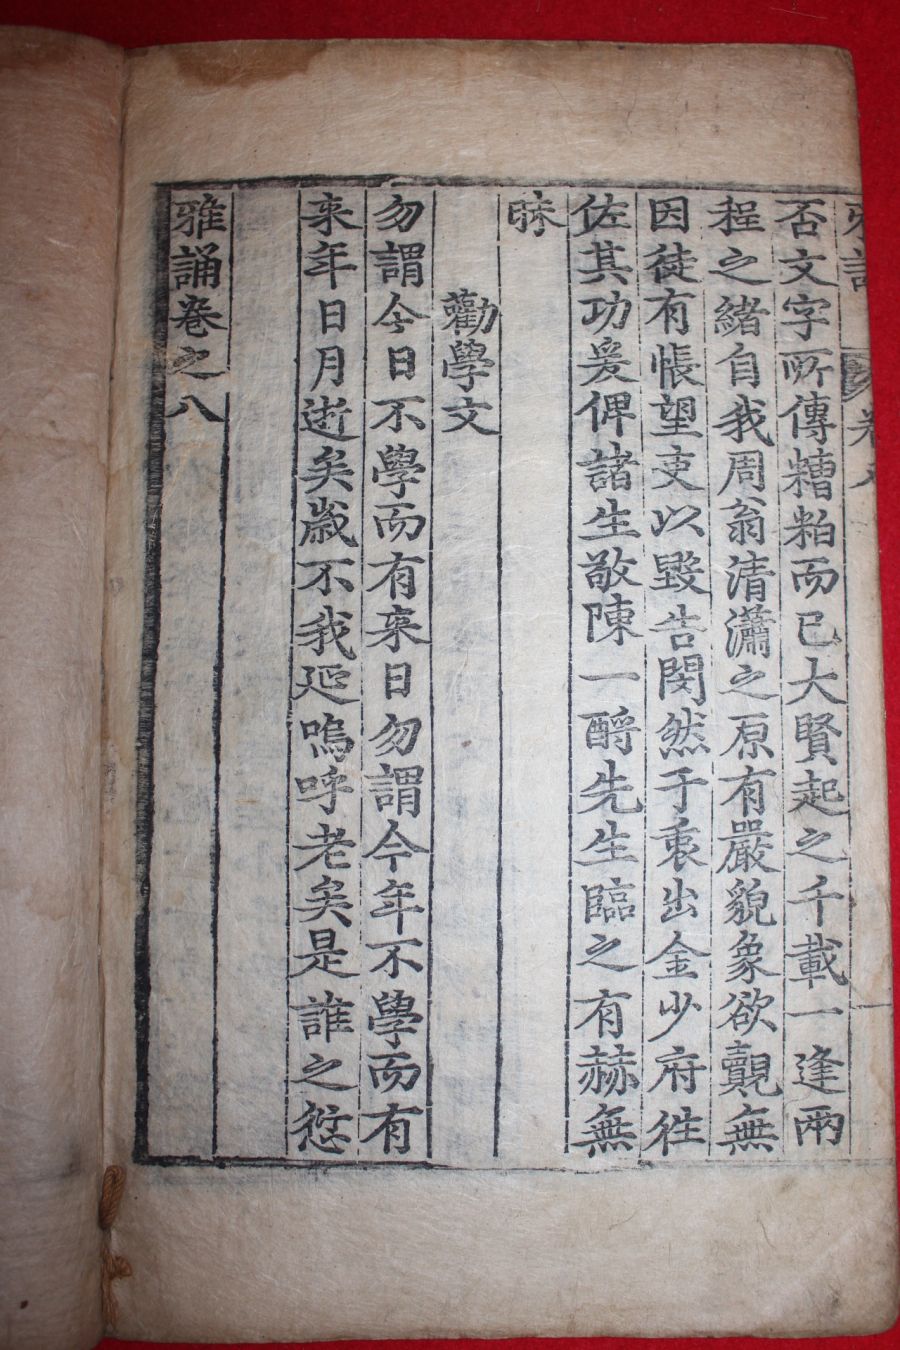 否文字所傳糟粕而已大賢起之千載一逢兩
程之緒自我周翁清瀟之原有嚴貌象欲覿無
因徒有悵望吏以毀告閔然于衷出金少府徃
佐其功爰俾諸生敬陳一酹先生臨之有赫無
昧
勸學文
勿謂今日不學而有来日勿謂今年不學而有
来年日月逝矣歲不我延嗚呼老矣是誰之愆
雅誦卷之八